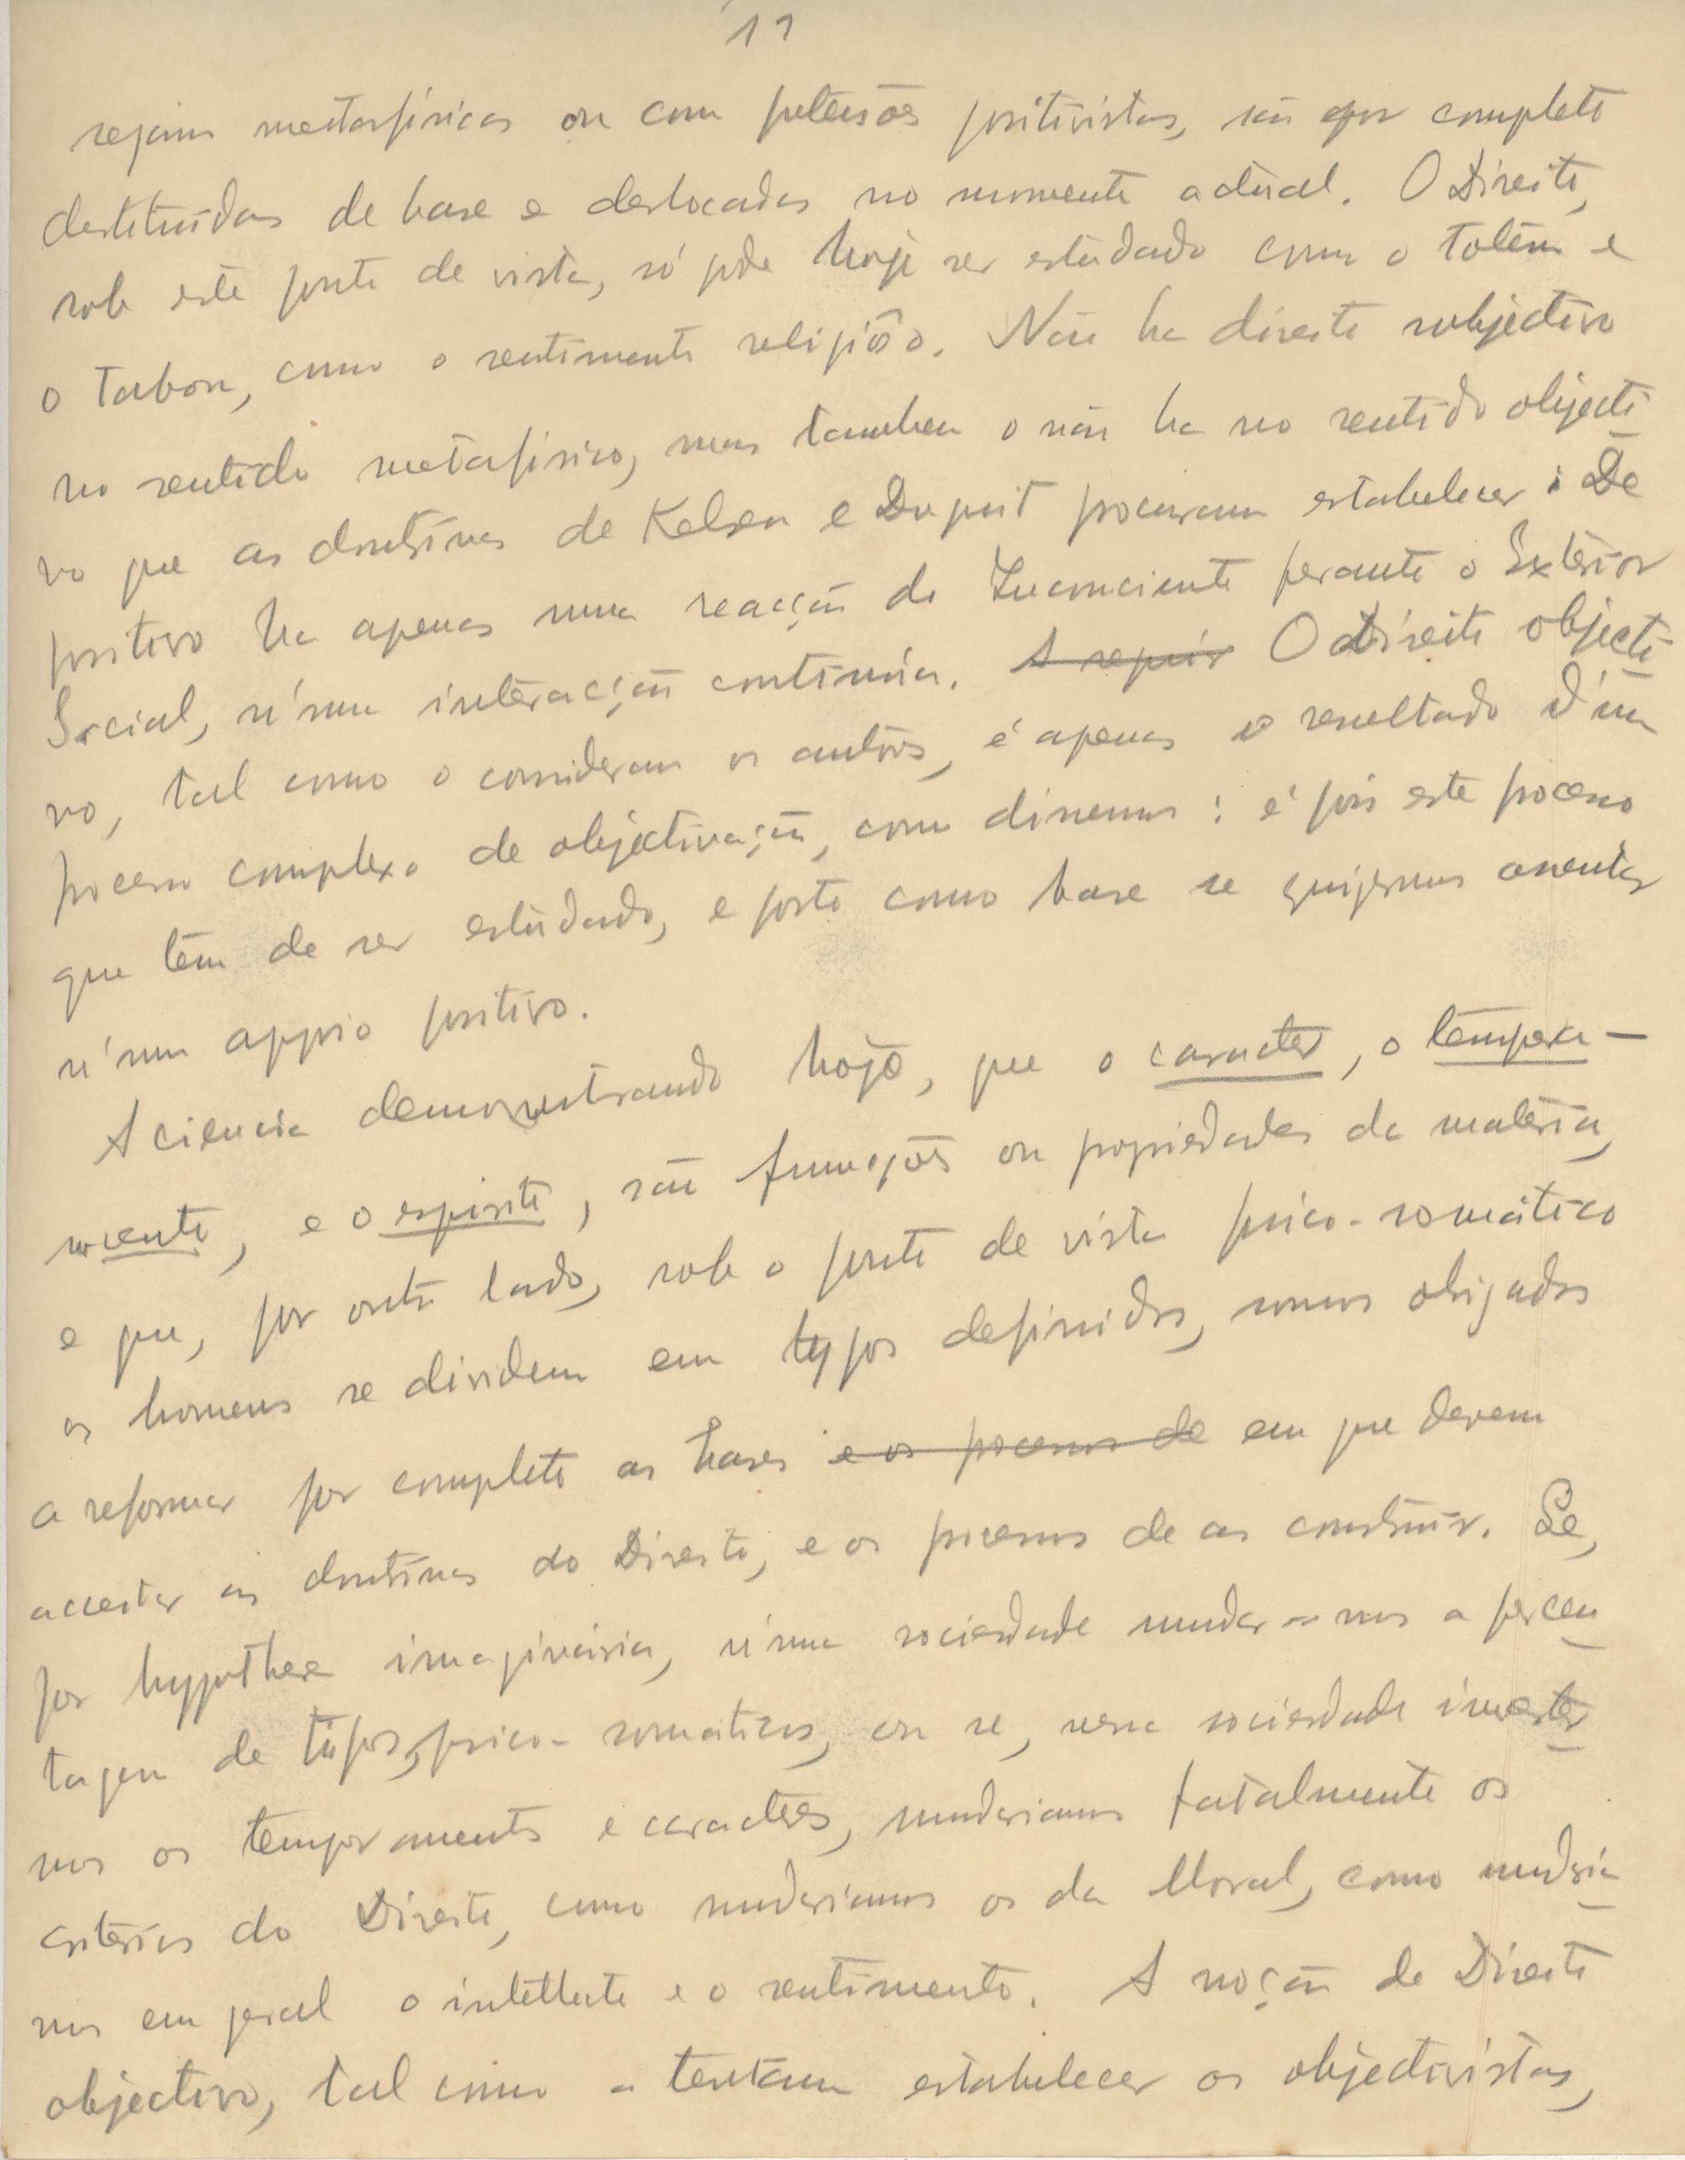 11
sejam metafísicas ou com pretensões positivistas, são por completo
destituídas de base e deslocadas no momento actual. O Direito,
sob este ponto de vista, só pode hoje ser estudado como o totem e
o tabou, como o sentimento religiôso. Não ha direito subjectivo
no sentido metafísico, mas tambem o não ha no sentido objecti
vo que as doutrinas de Kelsen e Duguit procuram estabelecer: De
positivo ha apenas uma reacção do Inconciente perante o Exterior
Social, n'uma interacção contínúa. A seguir O Direito objecti-
vo, tal como o consideram os autôres, é apenas o resultado d'um
processo complexo de objectivação, como dissemos: é pois este processo
que têm de ser estudado, e posto como base se quizermos assentar
n'um appoio positivo.
A ciencia demonstrando hoje, que o caracter, o tempera-
mento, e o espirito, são funcções ou propriedades da materia,
e que, por outro lado, sob o ponto de vista psico-somático
os homens se dividem em typos definidos, somos obrigados
a reformar por completo as bases e os processos de em que devem
assentar as doutrinas do Direito, e os processos de as construir. Se,
por hypothese imaginária, n'uma sociedade mudar-mos a percen
tagem de tipos, psico-somaticos, ou se, nessa sociedade inverter
mos os temperamentos e caractéres, mudariamos fatalmente os
critérios do Direito, como mudariamos os da Moral, como mudaria
mos em geral o intellecto e o sentimento. A noção de Direito
objectivo, tal como a tentam estabelecer os objectivistas,